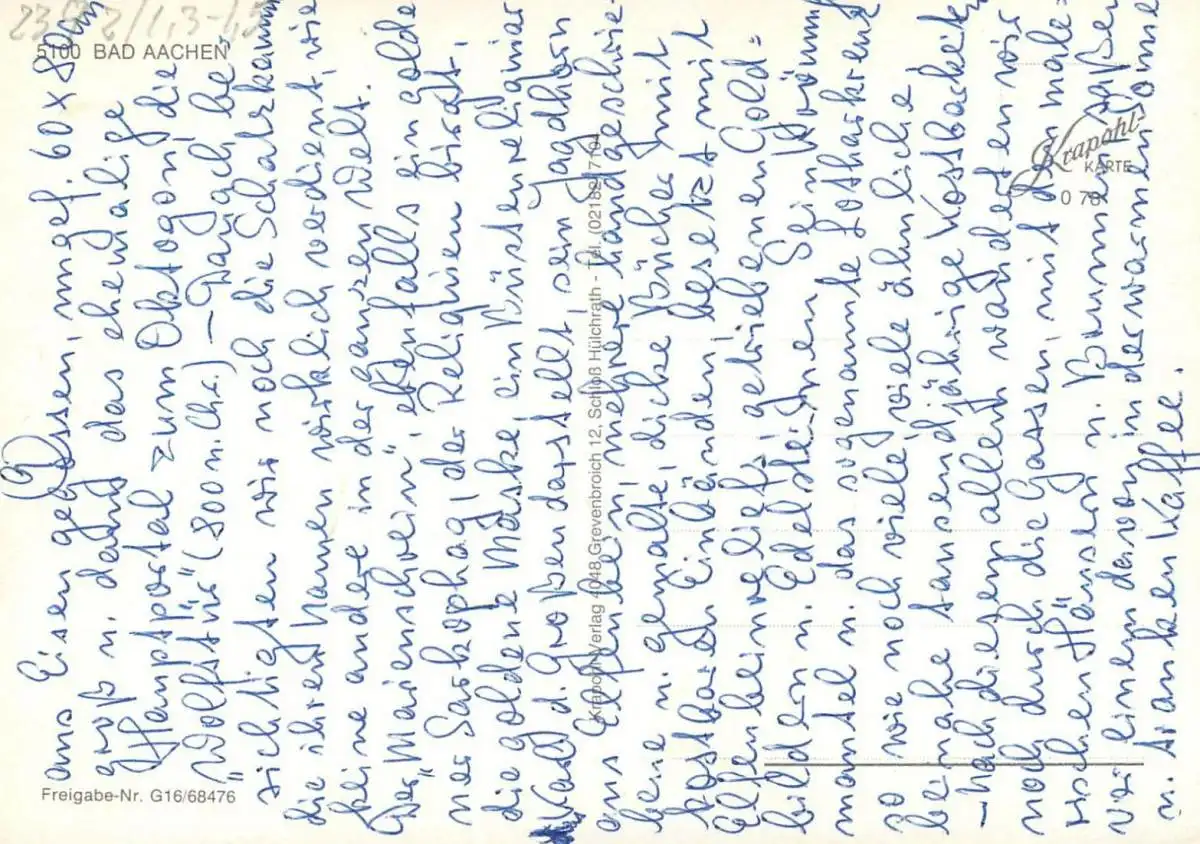 5100 BAD AACHEN
aus Eisen gegossen, ungef. 60 x 80 cm
groß u. dann das ehemalige
Hauptportal zum Oktogon, die
„Wolfstür" (800 n. Chr.) – Danach be-
sichtigten wir noch die Schatzkammer
die ihren Namen wirklich verdient, wie
keine andere in der ganzen Welt.
Der „Marienschrein", ebenfalls ein golde
ner Sarkophag, der Reliquien birgt,
die goldene Maske, ein Büstenreliquiar
Karl d. Großen darstellt, sein Jagdhorn
aus Elfenbein, mehrere handgeschrie-
bene u. gemalte, dicke Bücher mit
kostbaren Einbänden, besetzt mit
Elfenbeinreliefs, getriebenen Gold-
bildern u. Edelsteinen. Sein Krönungs
mantel u. das sogenannte Lotharkreuz
so wie noch viele, viele ähnliche
beinahe tausendjährige Kostbarkeiten
– Nach diesem allem wanderten wir
noch durch die Gassen, mit den male-
rischen Häusern u. Brunnen, saßen
vor einem davon in der warmen Sonne
u. tranken Kaffee.
Krapohl-Verlag 4048 Grevenbroich 12, Schloß Hülchrath - Tel. (02182) 7104
Krapohl-
KARTE
Freigabe-Nr. G16/68476